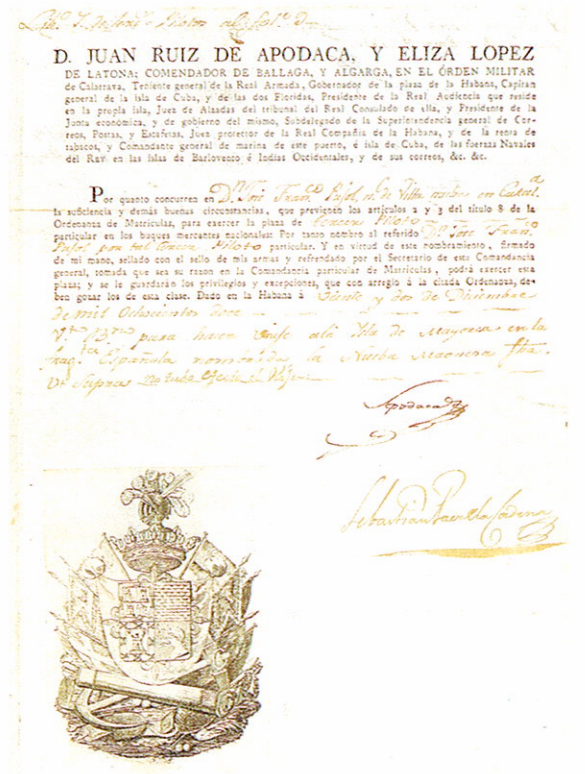 D. JUAN RUIZ DE APODACA, Y ELIZA LOPEZ
DE LATONA; COMENDADOR DE BALLAGA, Y ALGARGA, EN EL ÓRDEN MILITAR
de Calatrava, Teniente general de la Real Armada, Gobernador de la plaza de la Habana, Capitan
general de la isla de Cuba, y de las dos Floridas, Presidente de la Real Audiencia que reside
en la propia isla, Juez de Alzadas del tribunal del Real Consulado de ella, y Presidente de la
Junta económica, y de gobierno del mismo, Subdelegado de la Superintendencia general de Cor-
reos, Postas, y Estafetas, Juez protector de la Real Compañia de la Habana, y de la renta de
tabacos, y Comandante general de marina de este puerto, é isla de Cuba, de las fuerzas Navales
del Rey en las islas de Barlovento é Indias Occidentales, y de sus correos, &c. &c.
Por quanto concurren en Dn. José Franco. Pujol, n. de Villa en Catal.a
la suficiencia y demás buenas circunstancias, que previenen los artículos 2 y 3 del título 8 de la
Ordenanza de Matrículas, para exercer la plaza de Tercer Piloto
particular en los buques mercantes nacionales: Por tanto nombro al referido Dn. José Fran.co
Pujol por tal Tercer Piloto particular. Y en virtud de este nombramiento, firmado
de mi mano, sellado con el sello de mis armas y refrendado por el Secretario de esta Comandancia
general, tomada que sea su razon en la Comandancia particular de Matrículas, podrá exercer esta
plaza; y se le guardarán los privilegios y excepciones, que con arreglo á la citada Ordenanza, de-
ben gozar los de esta clase. Dado en la Habana á veinte y dos de Diciembre
de mil Ochocientos doce
V.to B.no para hacer viaje a la Isla de Mayorca en la
frag.ta Española nombrada la Nueba
Ut Supra
Apodaca
Sebastian de la Cadena